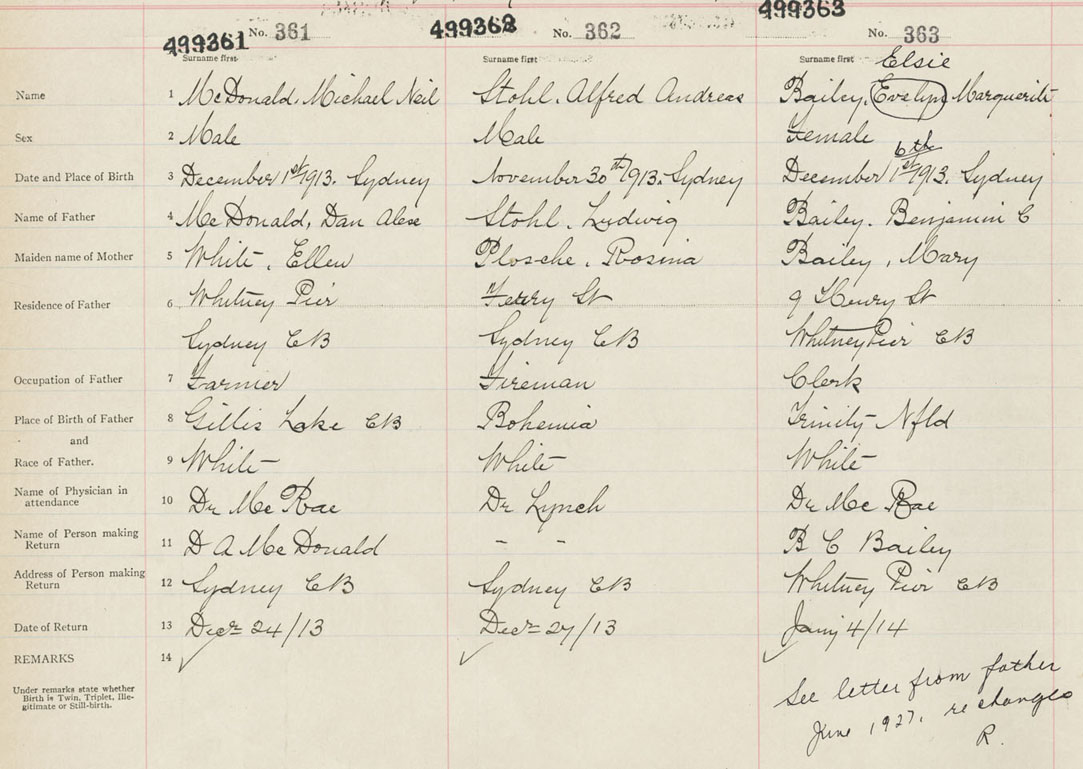 499361 No. 361 499362 No. 362 499363 No. 363
Surname first Surname first Surname first Elsie
Name 1 McDonald, Michael Neil Stohl, Alfred Andreas Bailey, Evelyn Marguerite
Sex 2 Male Male Female
6th
Date and Place of Birth 3 December 1st 1913. Sydney November 30th 1913. Sydney December 1st 1913. Sydney
Name of Father 4 McDonald, Dan Alex Stohl. Ludwig Bailey. Benjamin C
Maiden name of Mother 5 White, Ellen Plosche, Rosina Bailey, Mary
Residence of Father 6 Whitney Pier Ferry St 9 Henry St
Sydney CB Sydney CB Whitney Pier CB
Occupation of Father 7 Farmer Fireman Clerk
Place of Birth of Father 8 Gillis Lake CB Bohemia Trinity Nfld
and
Race of Father. 9 White White White
Name of Physician in
attendance 10 Dr McRae Dr Lynch Dr McRae
Name of Person making
Return 11 D A McDonald - - B C Bailey
Address of Person making
Return 12 Sydney CB Sydney CB Whitney Pier CB
Date of Return 13 Decr 24/13 Decr 27/13 Jany 4/14
REMARKS 14
Under remarks state whether
Birth is Twin, Triplet, Ille-
gitimate or Still-birth.
See letter from father
June 1927. re changes
R.